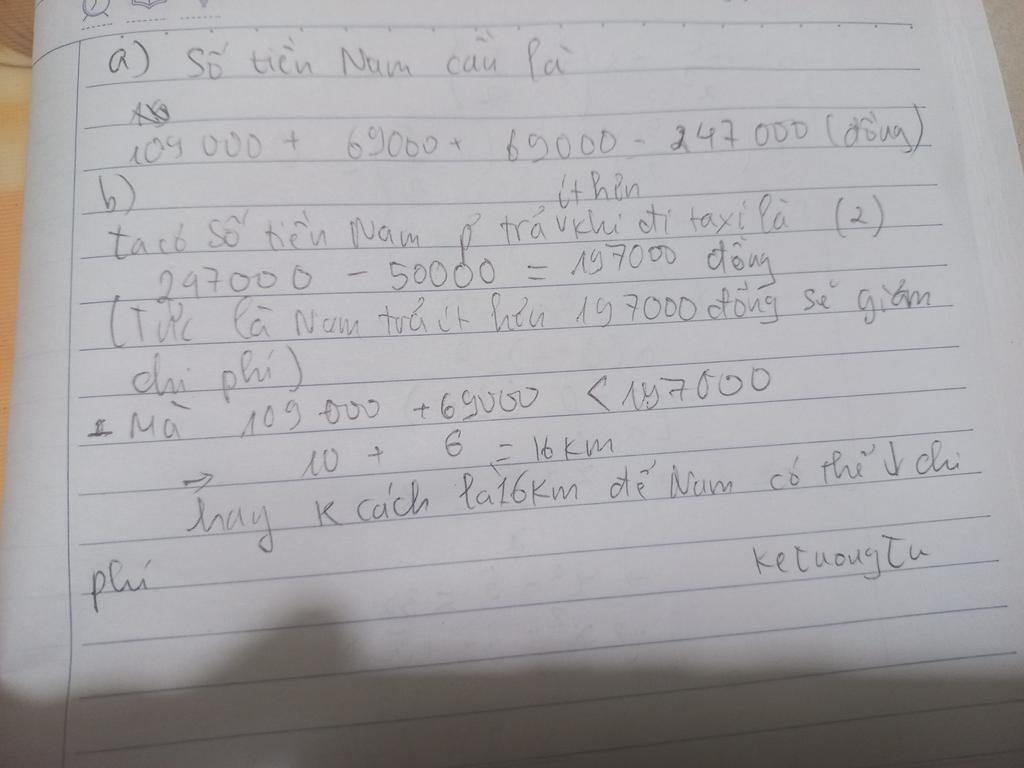 a) Số tiền Nam cần là
109 000 + 69000 + 69000 = 247 000 (đồng)
b)
ít hơn
ta có Số tiền Nam p trả khi đi taxi là (2)
247000 - 50000 = 197000 đồng
(Tức là Nam trả ít hơn 197000 đồng sẽ giảm
chi phí)
Mà 109 000 + 69000 < 197000
10 + 6 = 16 km
→ hay K cách là 16km để Nam có thể ↓ chi
phí
ketuongtu